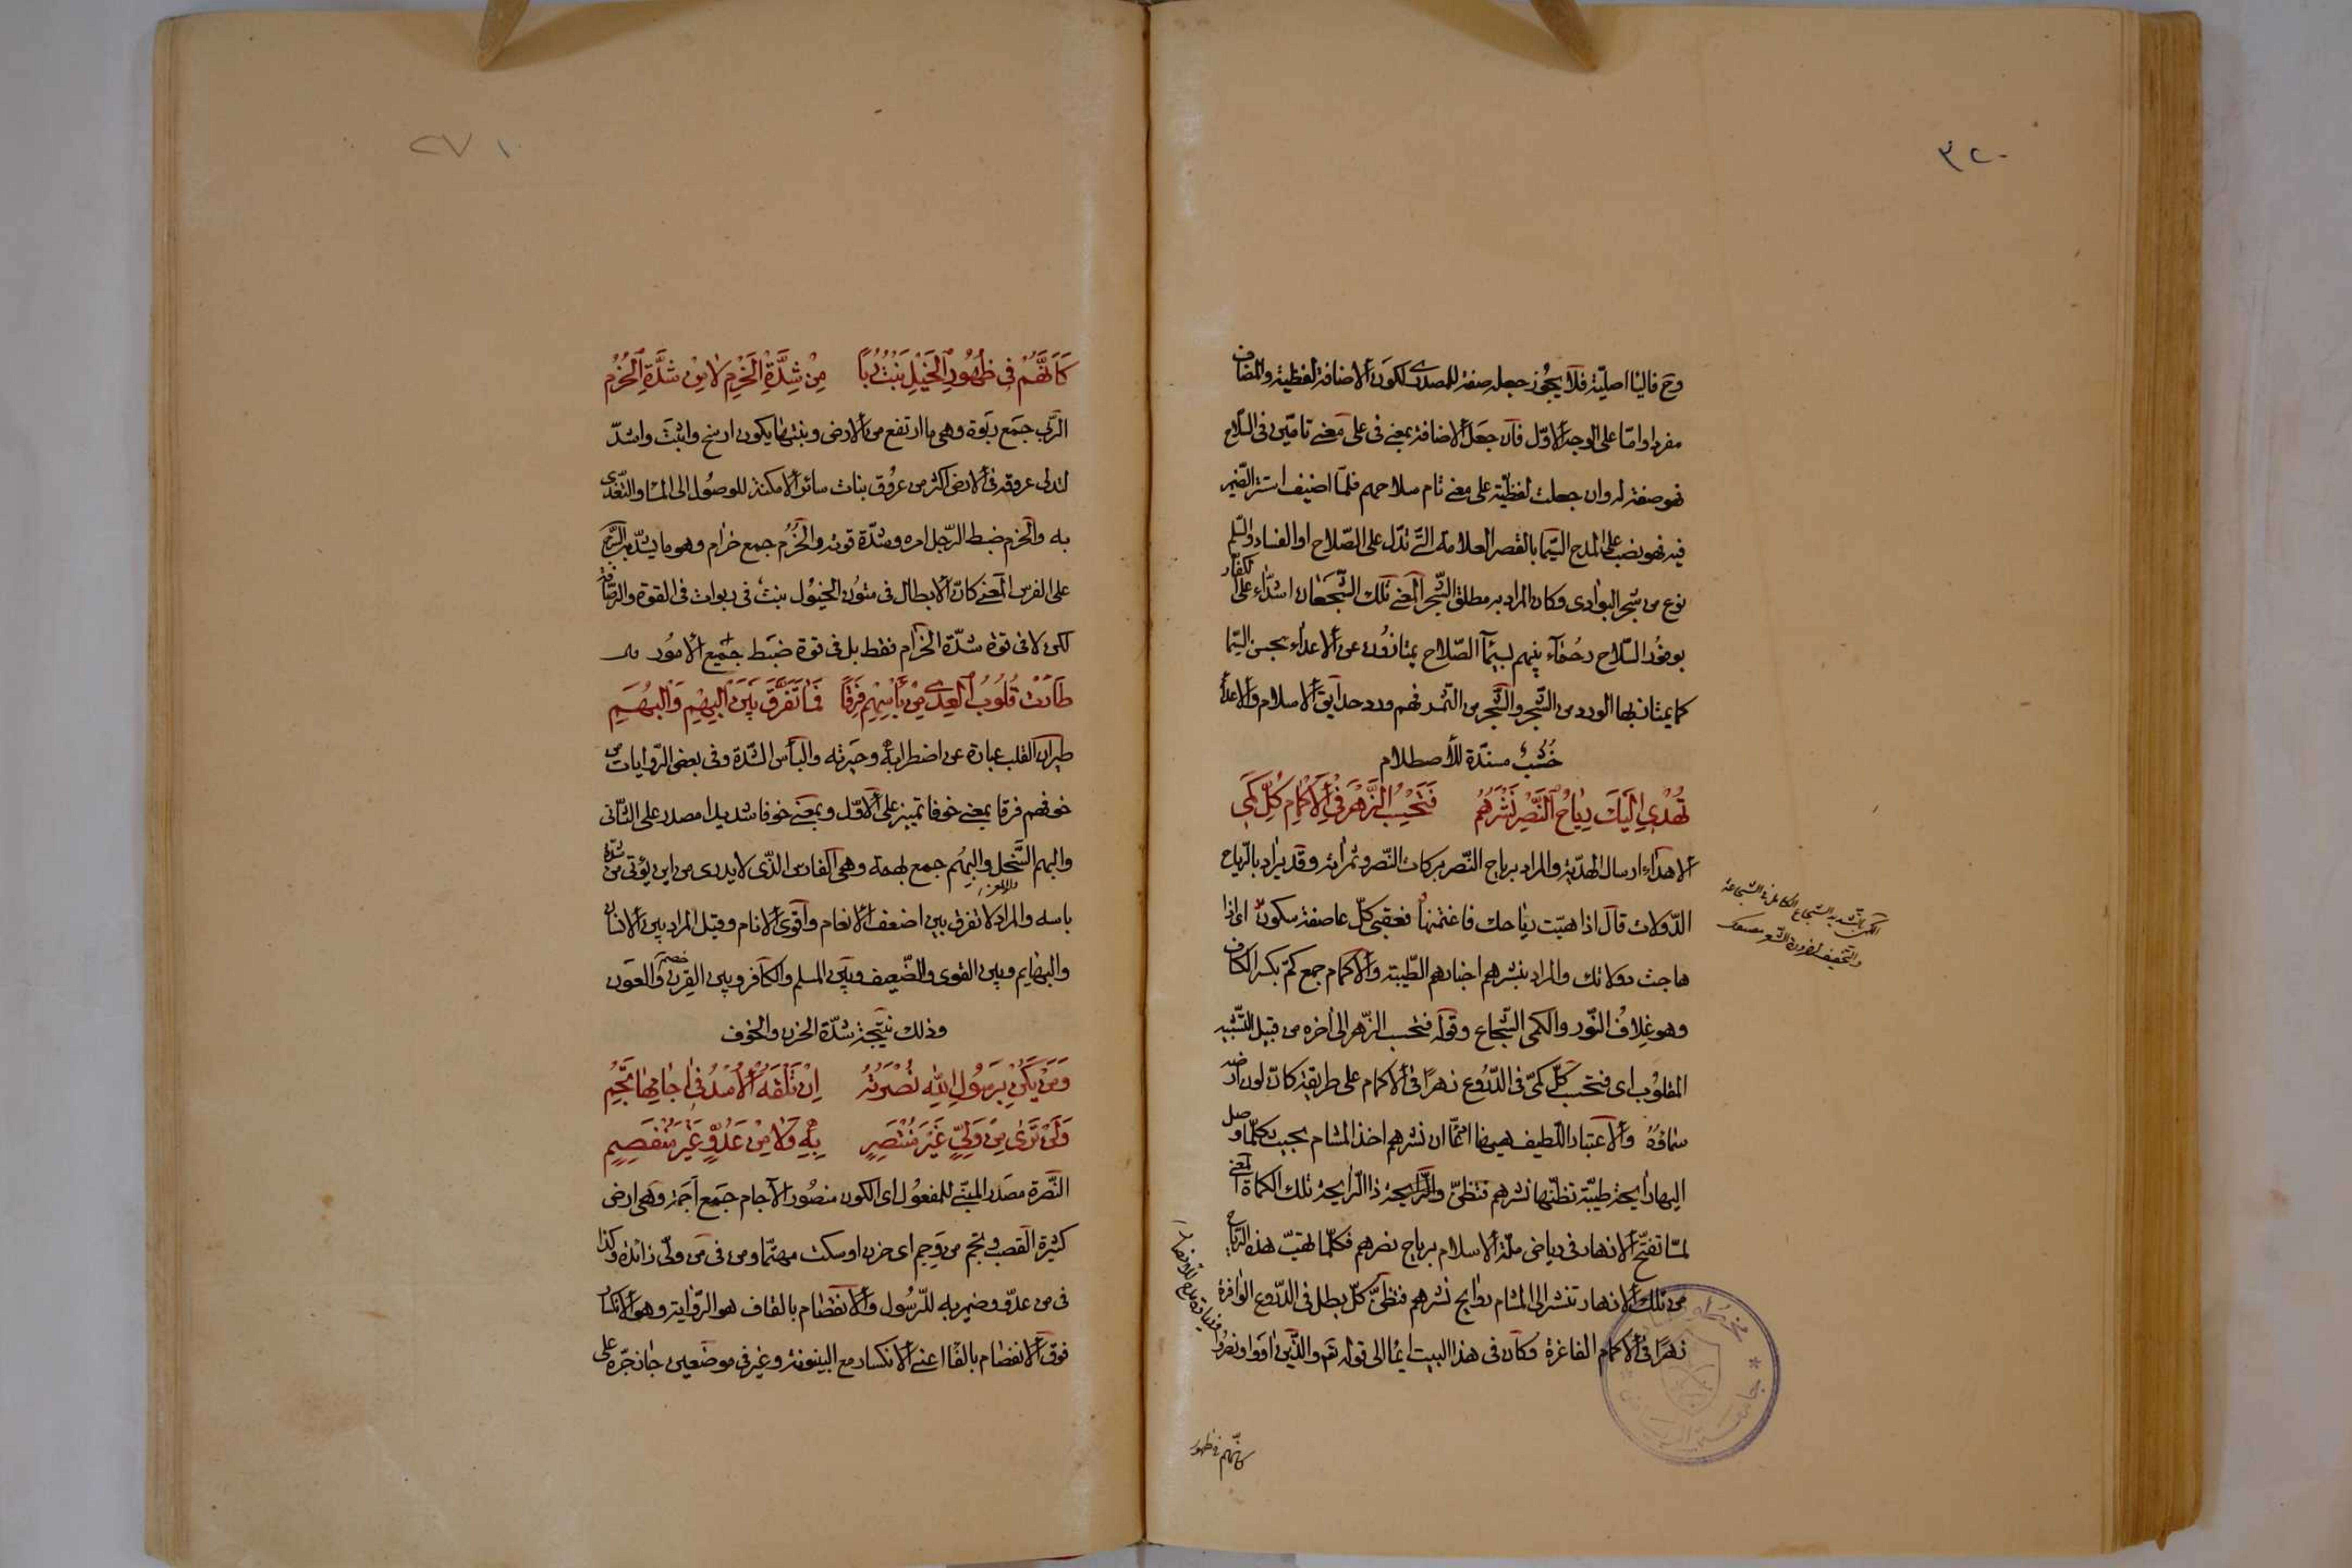 ٣٢٠
وح فاليا اصلية فلا يجوز جعله صفة للمصدر لكون الاضافة لفظية والمضاف
مفردا واما على الوجه الاول فان جعل الاضافة بمعنى فى على معنى تامين فى السلاح
فهو صفة له وان جعلت لفظية على معنى تام سلاحهم فلما اضيف استتر الضمير
فيه فهو نصب على المدح السيما بالقصر العلامة التى تدل على الصلاح او الفساد والسلم
نوع من شجر البوادى وكان المراد به مطلق الشجر المعنى تلك الشجعان اشداء على الكفار
بوفور السلاح رحماء بينهم لسيما الصلاح يمتازون عن الاعداء بحسن السيما
كما يمتاز بها الورد من الشجر والشجر من الثمر فهم ورد حدايق الاسلام والاعدا
خشب مسندة للاصطلام
تُهْدِى اِلَيْكَ رِيَاحُ النَّصْرِ نَشْرَهُمُ فَتَحْسِبُ الزَّهْرَ فِى الْاَكْمَامِ كُلَّ كَمِى
الاهداء ارسال الهدية والمراد برياح النصر بركات النصر وثمراته وقد يراد بالرياح
الدولات قال اذا هبت رياحك فاغتنمها فعقبى كل عاصفة سكون اى اذا
هاجت دولاتك والمراد بنشرهم اخبارهم الطيبة والاكمام جمع كم بكسر الكاف
وهو غلاف النور والكمى الشجاع وقوله فتحسب الزهر الى اخره من قبيل التشبيه
المقلوب اى فتحسب كل كمى فى الدروع زهرا فى الاكمام على طريقة كان لون ارضه
سماؤه والاعتبار اللطيف ههنا انما ان نشرهم اخذ المشام بحيث كلما وصل
اليها رايحة طيبة تظنها نشرهم فتظن والرايحة ذا الرايحة تلك الكماة المعنى
لما تفتح الازهار فى رياض ملة الاسلام برياح نصرهم فكلما تهب هذه الرياح
من تلك الازهار تنشر الى المشام روايح نشرهم فتظن كل بطل فى الدروع الوافرة
زهرا فى الاكمام الفاغرة وكان فى هذا البيت ايما الى قوله تع والذين اووا ونصروا
الكمى بالتشديد الشجاع الكامل فى الشجاعة
والتخفيف لضرورة الشعر
كانهم فى ظهور
٢٧١
كَاَنَّهُمْ فِى ظُهُورِ الْخَيْلِ نَبْتُ رُبًا مِنْ شِدَّةِ الْحَزْمِ لَا مِنْ شَدَّةِ الْحُزُمِ
الربى جمع ربوة وهى ما ارتفع من الارض ونبتها يكون ارسخ واثبت واشد
لتدلى عروقه فى الارض اكثر من عروق نبات سائر الامكنة للوصول الى الماء والتغذى
به والحزم ضبط الرجل امره وشدة قوته والحزم جمع حزام وهو ما يشد به السرج
على الفرس المعنى كان الابطال فى متون الخيول نبت فى ربوات فى القوة والرصافة
لكن لا فى قوة شدة الحزام فقط بل فى قوة ضبط جميع الامور
طَارَتْ قُلُوبُ الْعِدَى مِنْ بَأْسِهِمْ فَرَقًا فَمَا تَفَرَّقَ بَيْنَ الْبَهْمِ وَالْبُهَمِ
طيران القلب عبارة عن اضطرابه وحيرته والبأس الشدة وفى بعض الروايات من
خوفهم فرقا بمعنى خوفا تميز على الاول وبمعنى خوفا شديدا مصدر على الثانى
والبهم السخل والبهم جمع بهمة وهى الفارس الذى لا يدرى من اين يؤتى من شدة
باسه والمراد لا تفرق بين اضعف الانعام واقوى الانام وقيل المراد بين الانسان
والبهايم وبين القوى والضعيف وبين المسلم والكافر وبين القرن والعون
وذلك نتيجة شدة الحزن والخوف
وَمَنْ يَكُنْ بِرَسُولِ اللهِ نُصْرَتُهُ اِنْ تَلْقَهُ الْاُسْدُ فِى اٰجَامِهَا تَجِمِ
وَلَنْ تَرٰى مِنْ وَلِىٍّ غَيْرَ مُنْتَصِرٍ بِهِ وَلَا مِنْ عَدُوٍّ غَيْرَ مُنْقَصِمِ
النصرة مصدر المبنى للمفعول اى الكون منصورا الآجام جمع اجمة وهى ارض
كثيرة القصب وتجم من وجم اى حزن او سكت مهتما ومن فى من ولى زائدة وكذا
فى من عدو وضمير به للرسول والانقصام بالقاف هو الرواية وهو الانكسار
فوق الانفصام بالفاء اعنى الانكسار مع البينونة وغير فى موضعين جاز جره على